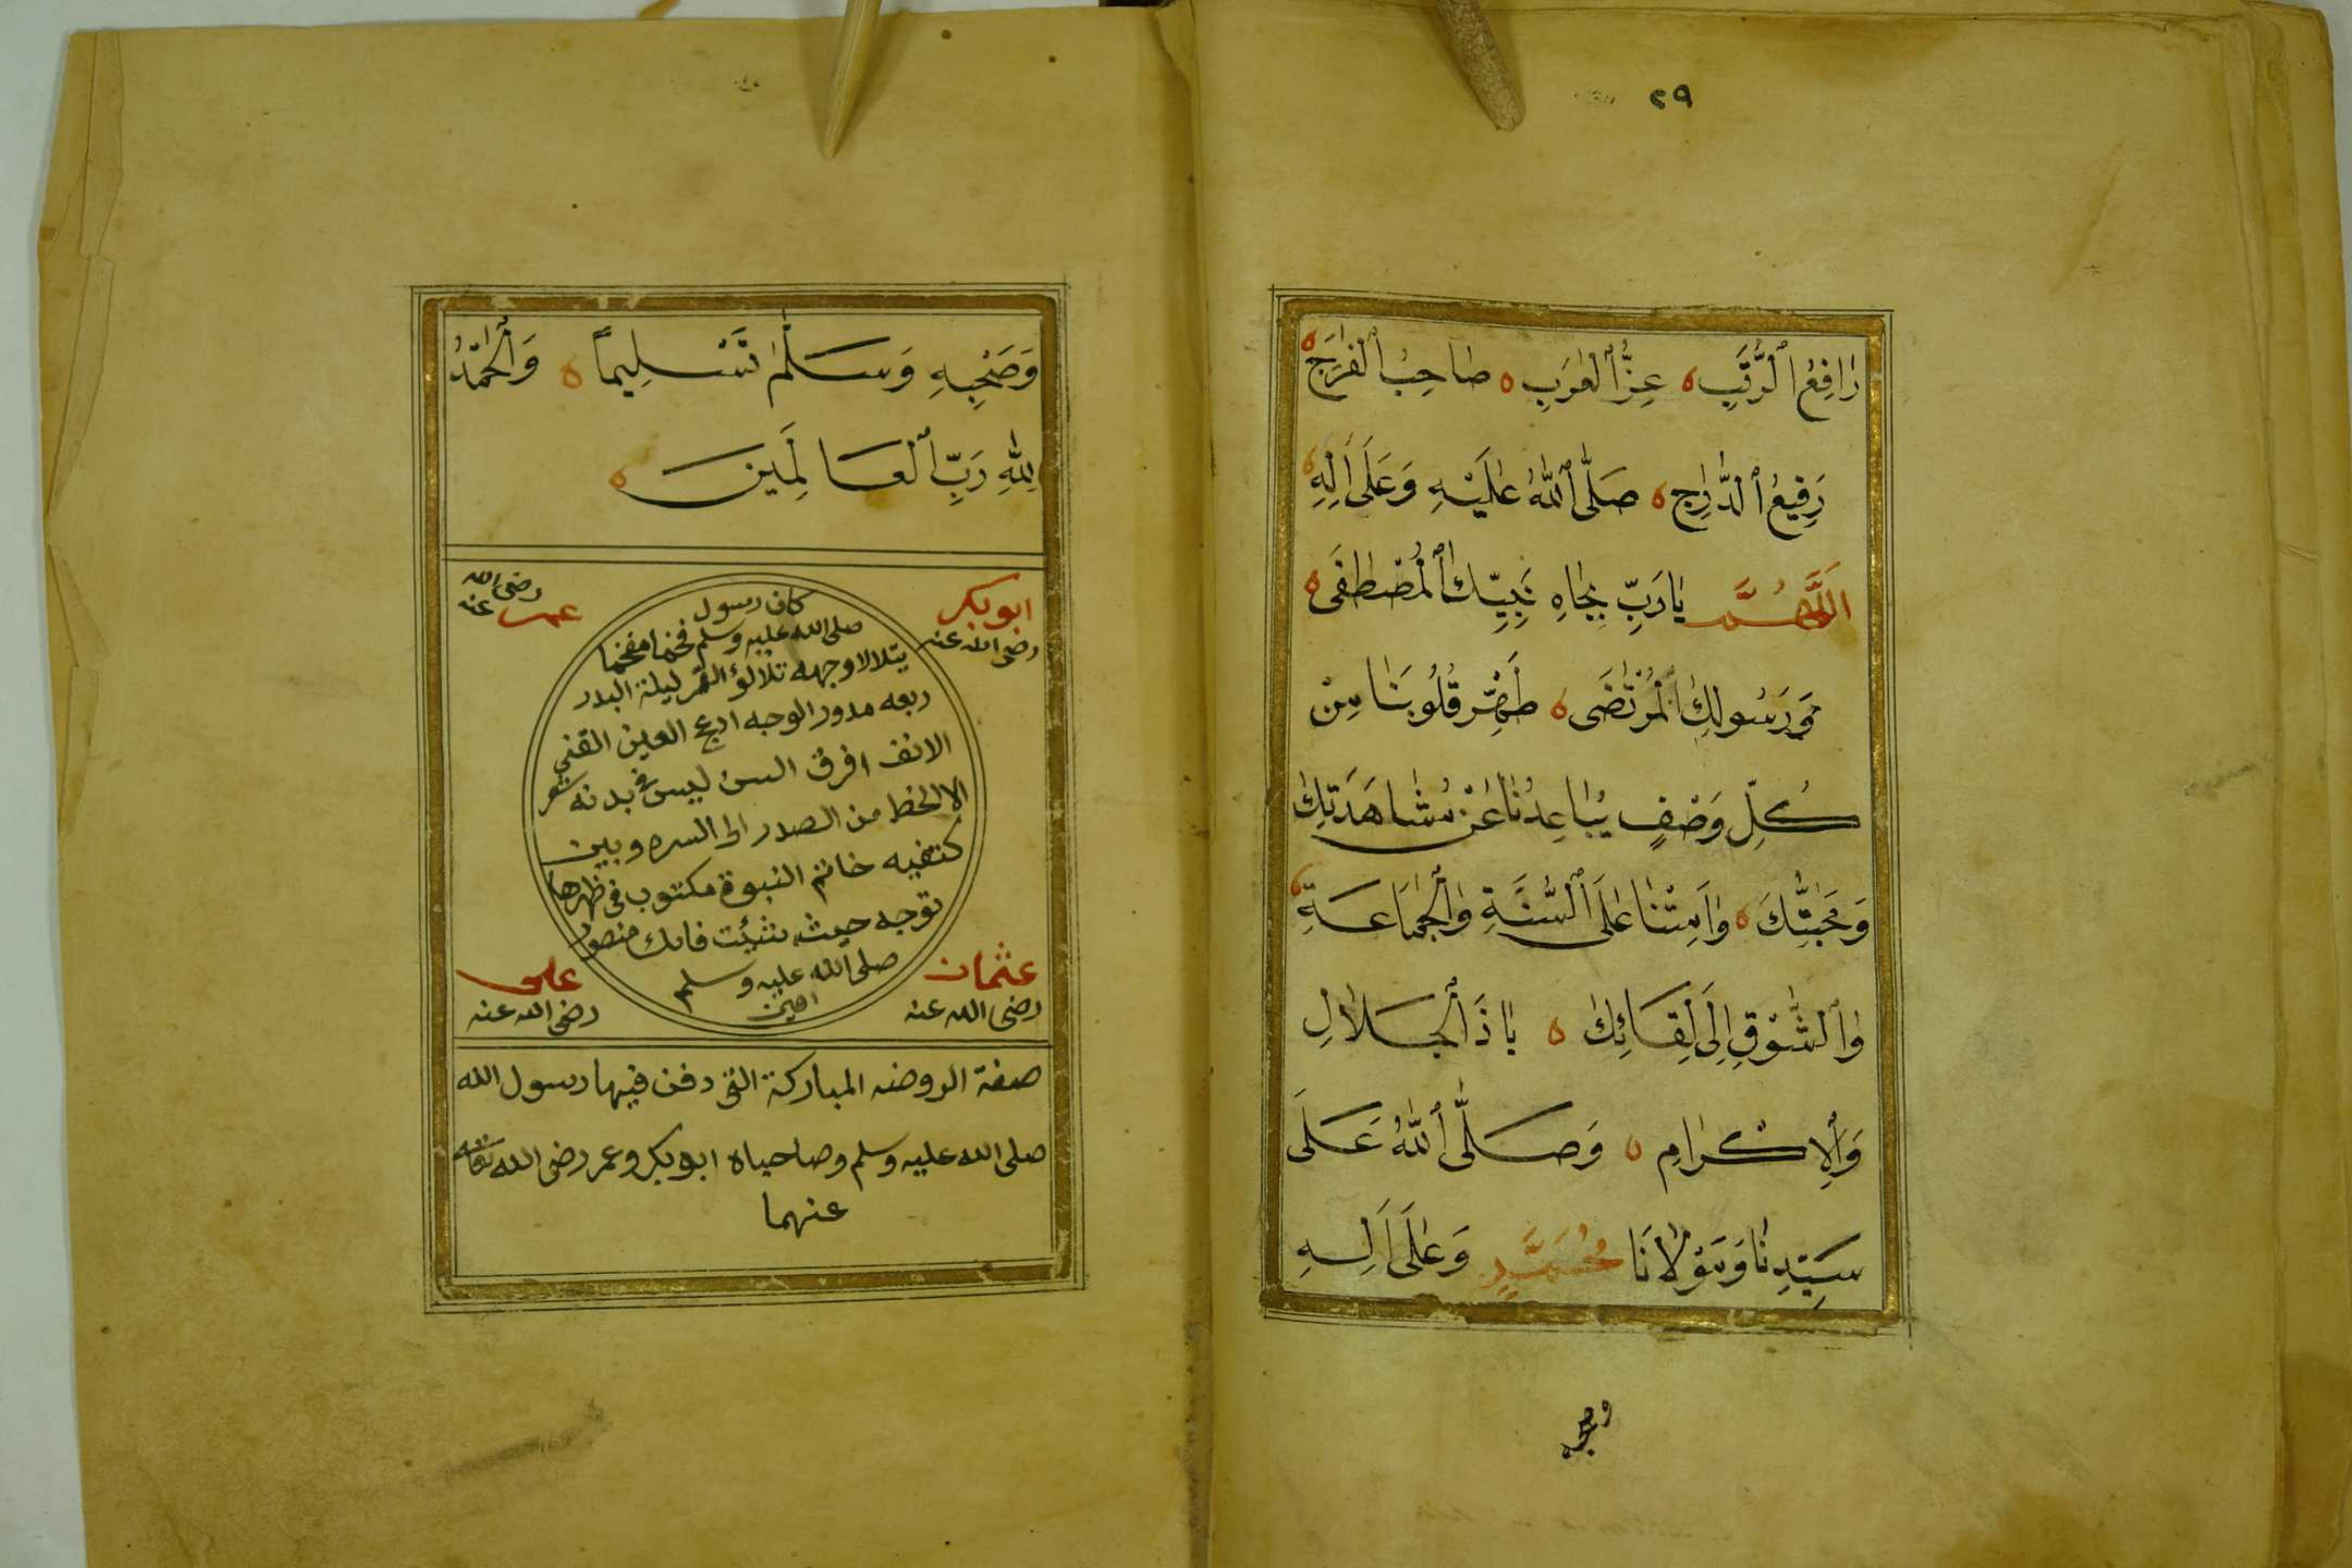 ٢٩
رَافِعُ ٱلرُّتَبِ ه عِزُّ ٱلْعَرَبِ ه صَاحِبُ ٱلْفَرَجِ ه
رَفِيعُ ٱلدَّرَجِ ه صَلَّى ٱللّٰهُ عَلَيْهِ وَعَلَى اَلِهِ ه
اَللَّهُمَّ يَارَبِّ بِجَاهِ نَبِيِّكَ ٱلْمُصْطَفَى ه
وَرَسُولِكَ ٱلْمُرْتَضَى ه طَهِّرْ قُلُوبَنَا مِنْ
كُلِّ وَصْفٍ يُبَاعِدُنَا عَنْ مُشَاهَدَتِكَ
وَمَحَبَّتِكَ ه وَاَمِتْنَا عَلَى ٱلسُّنَّةِ وَٱلْجَمَاعَةِ ه
وَٱلشَّوْقِ اِلَى لِقَائِكَ ه يَا ذَا ٱلْجَلَالِ
وَٱلْاِكْرَامِ ه وَصَلَّى ٱللّٰهُ عَلَى
سَيِّدِنَا وَمَوْلَانَا مُحَمَّدٍ وَعَلَى اَلِهِ
وصحبه
وَصَحْبِهِ وَسَلَّمَ تَسْلِيماً ه وَٱلْحَمْدُ
لِلّٰهِ رَبِّ ٱلْعَالَمِينَ ه
ابوبكر
رضى الله عنه
عمر رضى الله عنه
كان رسول
صلى الله عليه وسلم فخما مفخما
يتلالا وجهه تلالؤ القمر ليلة البدر
ربعه مدور الوجه ادعج العين القنى
الانف افرق السن ليس فى بدنه شعر
الا لخط من الصدر الى السره وبين
كتفيه خاتم النبوة مكتوب فى ظهرها
توجه حيث شئت فانك منصور
صلى الله عليه وسلم
امين
عثمان
رضى الله عنه
على
رضى الله عنه
صفة الروضه المباركة التى دفن فيها رسول الله
صلى الله عليه وسلم وصاحباه ابوبكر وعمر رضى الله تعالى
عنهما